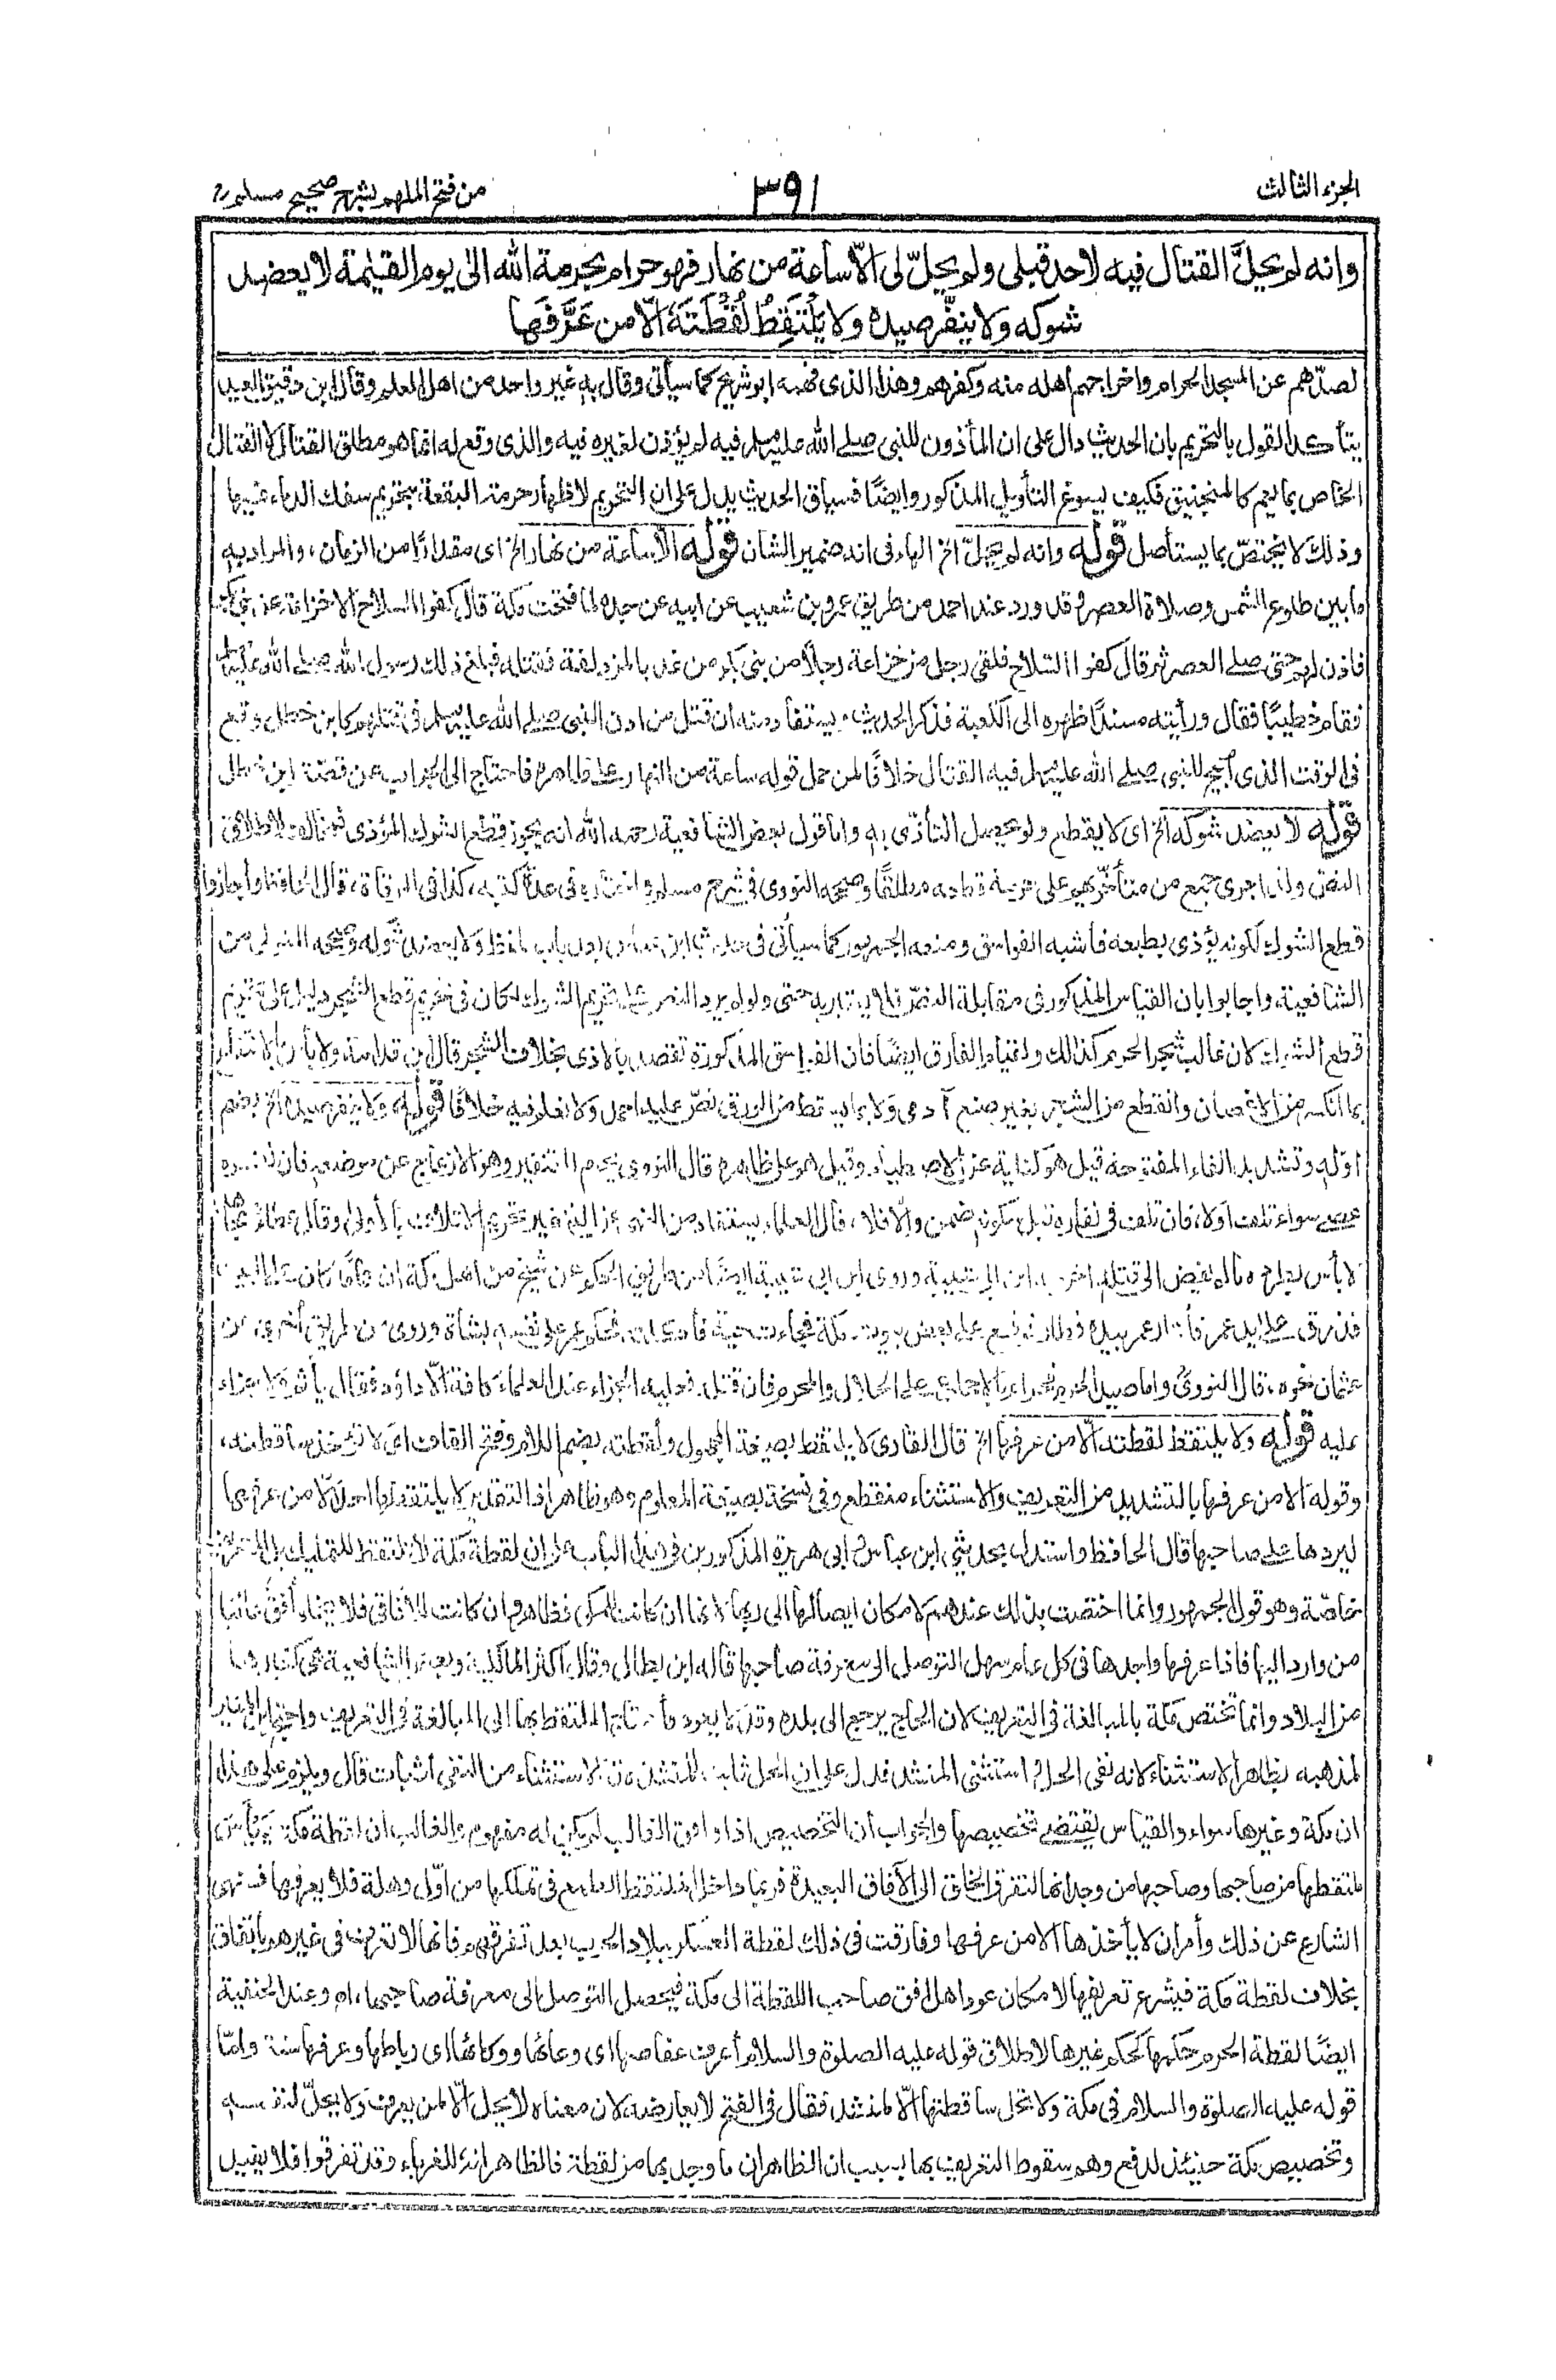 الجزء الثالث
٣٩١
من فتح الملهم بشرح صحيح مسلم
وانه لم يحلَّ القتال فيه لاحد قبلى ولم يحلّ لى الّا ساعة من نهار فهو حرام بحرمة الله الى يوم القيٰمة لا يعضد
شوكه ولا ينفّر صيده ولا يَلْتَقِطُ لُقَطَتَهُ الّا من عَرَّفَها
لصدّهم عن المسجد الحرام واخراجهم اهله منه وكفرهم وهذا الذى فهمه ابو شريح كما سيأتى وقال به غير واحد من اهل العلم وقال ابن دقيق العيد
يتأكد القول بالتحريم بان الحديث دال على ان المأذون للنبى صلے الله عليه وسلم فيه لم يؤذن لغيره فيه والذى وقع له انما هو مطلق القتال لا القتال
الخاص بما يعم كالمنجنيق فكيف يسوغ التأويل المذكور وايضًا فسياق الحديث يدل على ان التحريم لاظهار حرمة البقعة بتحريم سفك الدماء فيها
وذلك لا يختصّ بما يستأصل قوله وانه لم يحلّ الخ الهاء فى انه ضمير الشان قوله الّا ساعة من نهار الخ اى مقدارًا من الزمان، والمراد به
ما بين طلوع الشمس وصلاة العصر وقد ورد عند احمد من طريق عمرو بن شعيب عن ابيه عن جده لما فتحت مكة قال كفوا السلاح الا خزاعة عن بنى بكر
فاذن لهم حتى صلے العصر ثم قال كفوا السلاح فلقى رجل من خزاعة رجلًا من بنى بكر من غد بالمزدلفة فقتله فبلغ ذلك رسول الله صلے الله عليه وسلم
فقام خطيبًا فقال ورأيته مسندًا ظهره الى الكعبة فذكر الحديث، يستفاد منه ان قتل من اذن النبى صلے الله عليه وسلم فى قتلهم كابن خطل وقع
فى الوقت الذى أبيح للنبى صلے الله عليه وسلم فيه القتال خلافًا لمن حمل قوله ساعة من النهار على ظاهره فاحتاج الى الجواب عن قصة ابن خطل
قوله لا يعضد شوكه الخ اى لا يقطع ولو يحصل التأذى به واما قول بعض الشافعية رحمه الله انه يجوز قطع الشوك المؤذى فمخالف لاطلاق
النص ولذا جرى جمع من متأخريهم على حرمة قطعه مطلقًا وصححه النووى فى شرح مسلم واختاره فى عدة كتبه، كذا فى المرقاة، قال الحافظ وأجازوا
قطع الشوك لكونه يؤذى بطبعه فاشبه الفواسق ومنعه الجمهور كما سيأتى فى حديث ابن عباس بعد باب بلفظ ولا يعضد شوكه وصححه المتولى من
الشافعية، واجابوا بان القياس المذكور فى مقابلة النصّ فلا يعتبر به حتى ولو لم يرد النص على تحريم الشوك لكان فى تحريم قطع الشجر دليل على تحريم
قطع الشوك لان غالب شجر الحرم كذلك ولقيام الفارق ايضًا فان الفواسق المذكورة تقصد بالاذى بخلاف الشجر قال ابن قدامة ولا بأس بالانتفاع
بما انكسر من الاغصان وانقطع من الشجر بغير صنع آدمى ولا بما يسقط من الورق نصّ عليه احمد ولا نعلم فيه خلافًا قوله ولا ينفر صيده الخ بضم
اوّله وتشديد الفاء المفتوحة قيل هو كناية عن الاصطياد وقيل هو على ظاهره قال النووى يحرم التنفير وهو الازعاج عن موضعه فان نفره
عصے سواء تلف اولا، فان تلف فى نفاره قبل سكونه ضمن والّا فلا، قال العلماء يستفاد من النهى عن التنفير تحريم الاتلاف بالاولى وقال عطاء ومجاهد
لا بأس بطرده ما لم يفض الى قتله اخرجه ابن ابى شيبة وروى ابن ابى شيبة ايضًا من طريق الحكم عن شيخ من اهل مكة ان حمامًا كان على البيت
فذرق على يد عمر فأشار عمر بيده فطار فوقع على بعض بيوت مكة فجاءت حية فأكلته، فحكم عمر على نفسه بشاة وروى من طريق أخرى عن
عثمان نحوه، قال النووىؒ واما صيد الحرم فحرام بالاجماع على الحلال والمحرم فان قتله فعليه الجزاء عند العلماء كافة الّا داؤد فقال يأثم ولا جزاء
عليه قوله ولا يلتقط لقطته الّا من عرفها الخ قال القارى لا يلتقط بصيغة المجهول ولقطته بضم اللام وفتح القاف اى لا تؤخذ ساقطته،
وقوله الا من عرفها بالتشديد من التعريف والاستثناء منقطع وفى نسخة بصيغة المعلوم وهو ظاهر اذ التقدير لا يلتقطها احد الّا من عرفها
ليردها على صاحبها قال الحافظ واستدل بحديثى ابن عباس وابى هريرة المذكورين فى هذا الباب على ان لقطة مكة لا تلتقط للتمليك بل للتعريف
خاصّة وهو قول الجمهور وانما اختصت بذلك عندهم لامكان ايصالها الى ربها لانها ان كانت للمكى فظاهر وان كانت للآفاقى فلا يخلو أفق غالبًا
من وارد اليها فاذا عرفها واجدها فى كل عام سهل التوصل الى معرفة صاحبها قاله ابن بطال وقال اكثر المالكية وبعض الشافعية هى كغيرها
من البلاد وانما تختص مكة بالمبالغة فى التعريف لان الحاج يرجع الى بلده وقد لا يعود فاحتاج الملتقط بها الى المبالغة فى التعريف واحتج ابن المنير
لمذهبه بظاهر الاستثناء لانه نفى الحل واستثنى المنشد فدل على ان الحل ثابت للمنشد لان الاستثناء من النفى اثبات قال ويلزم على هذا
ان مكة وغيرها سواء والقياس يقتضے تخصيصها والجواب ان التخصيص اذا وافق الغالب لم يكن له مفهوم والغالب ان لقطة مكة ييأس
ملتقطها من صاحبها وصاحبها من وجدانها لتفرق الخلق الى الآفاق البعيدة فربما داخل الملتقط الطمع فى تملكها من اوّل وهلة فلا يعرفها فنهى
الشارع عن ذلك وأمر ان لا يأخذها الا من عرفها وفارقت فى ذلك لقطة العسكر ببلاد الحرب بعد تفرقهم فانها لا تعرف فى غيرهم باتفاق
بخلاف لقطة مكة فيشرع تعريفها لامكان عود اهل افق صاحب اللقطة الى مكة فيحصل التوصل الى معرفة صاحبها، اه وعند الحنفية
ايضًا لقطة الحرم حكمها كحكم غيرها لاطلاق قوله عليه الصلوة والسلام أعرف عفاصها اى وعائها ووكائها اى رباطها وعرفها سنة وامّا
قوله عليه الصلوة والسلام فى مكة ولا تحل ساقطتها الّا لمنشد فقال فى الفتح لا يعارضه لان معناه لا يحل الّا لمن يعرف ولا يحلّ لنفسه
وتخصيص مكة حينئذ لدفع وهم سقوط التعريف بها بسبب ان الظاهر ان ما وجد بها من لقطة فالظاهر انه للغرباء وقد تفرقوا فلا يفيد